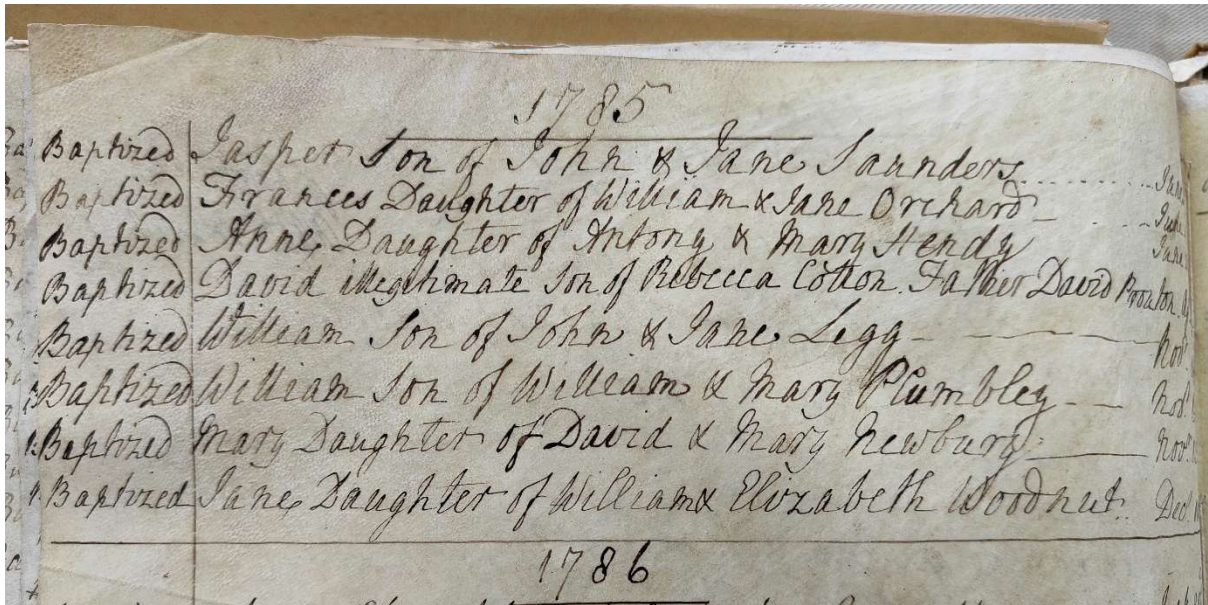 1785
Baptized Jasper Son of John & Jane Saunders
Baptized Frances Daughter of William & Jane Orchard
Baptized Anne Daughter of Antony & Mary Hendy
Baptized David illegitimate Son of Rebecca Cotton. Father David
Baptized William Son of John & Jane Legg Novr.
Baptized William Son of William & Mary Plumbley Novr.
Baptized Mary Daughter of David & Mary Newbury Novr.
Baptized Jane Daughter of William & Elizabeth Woodnut. Decr.
1786